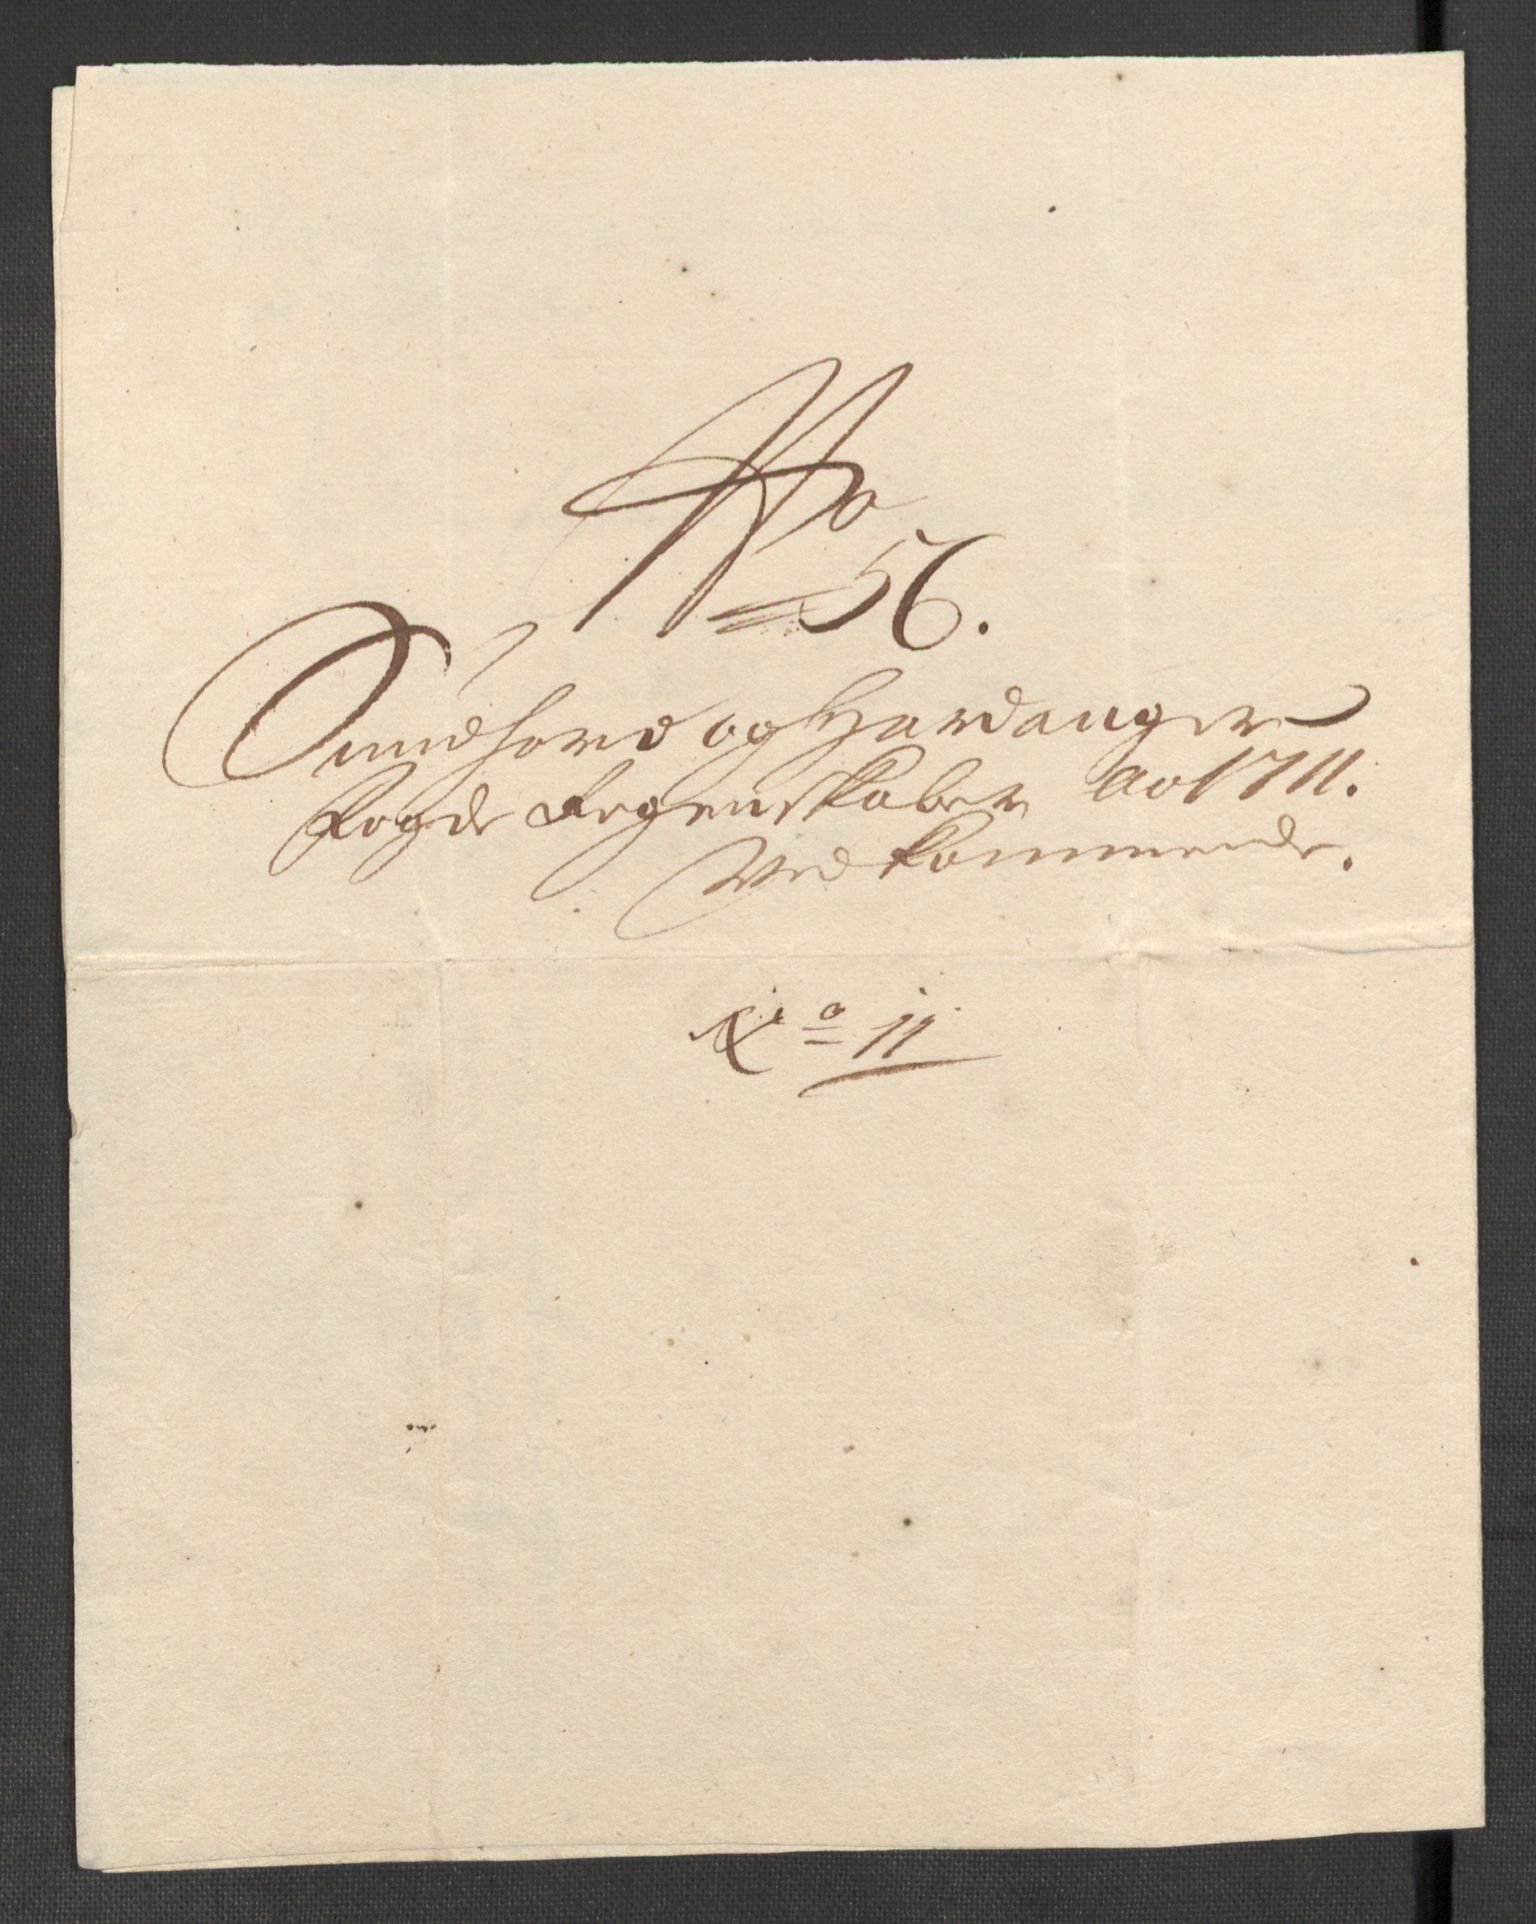 No
56.
Sundhord og Hardanger
Fogde Regenskaber ao 1711.
Vedkommende.
No 11